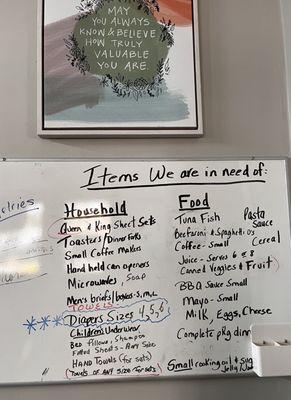 MAY
YOU ALWAYS
KNOW & BELIEVE
HOW TRULY
VALUABLE
YOU ARE.
Items We are in need of:
Household
Queen & King Sheet Sets
Toasters/Dinner Forks
Small Coffee Makers
Hand held can openers
Microwaves, Soap
Men's briefs/boxers-S,M,L
TOWELS
Diapers Sizes 4, 5, 6
Children's Underwear
Bed Pillows, Shampoo
Fitted Sheets - Any Size
HAND TOWELS (for sets)
(Towels of ANY size for sets)
Food
Tuna Fish
Pasta Sauce
BeefaRoni & Spaghettios
Coffee - Small
Cereal
Juice - Serves 6 or 8
Canned Veggies & Fruit
BBQ Sauce Small
Mayo - Small
Milk, Eggs, Cheese
Complete pkg dinn
Small cooking oil & sug
Jelly